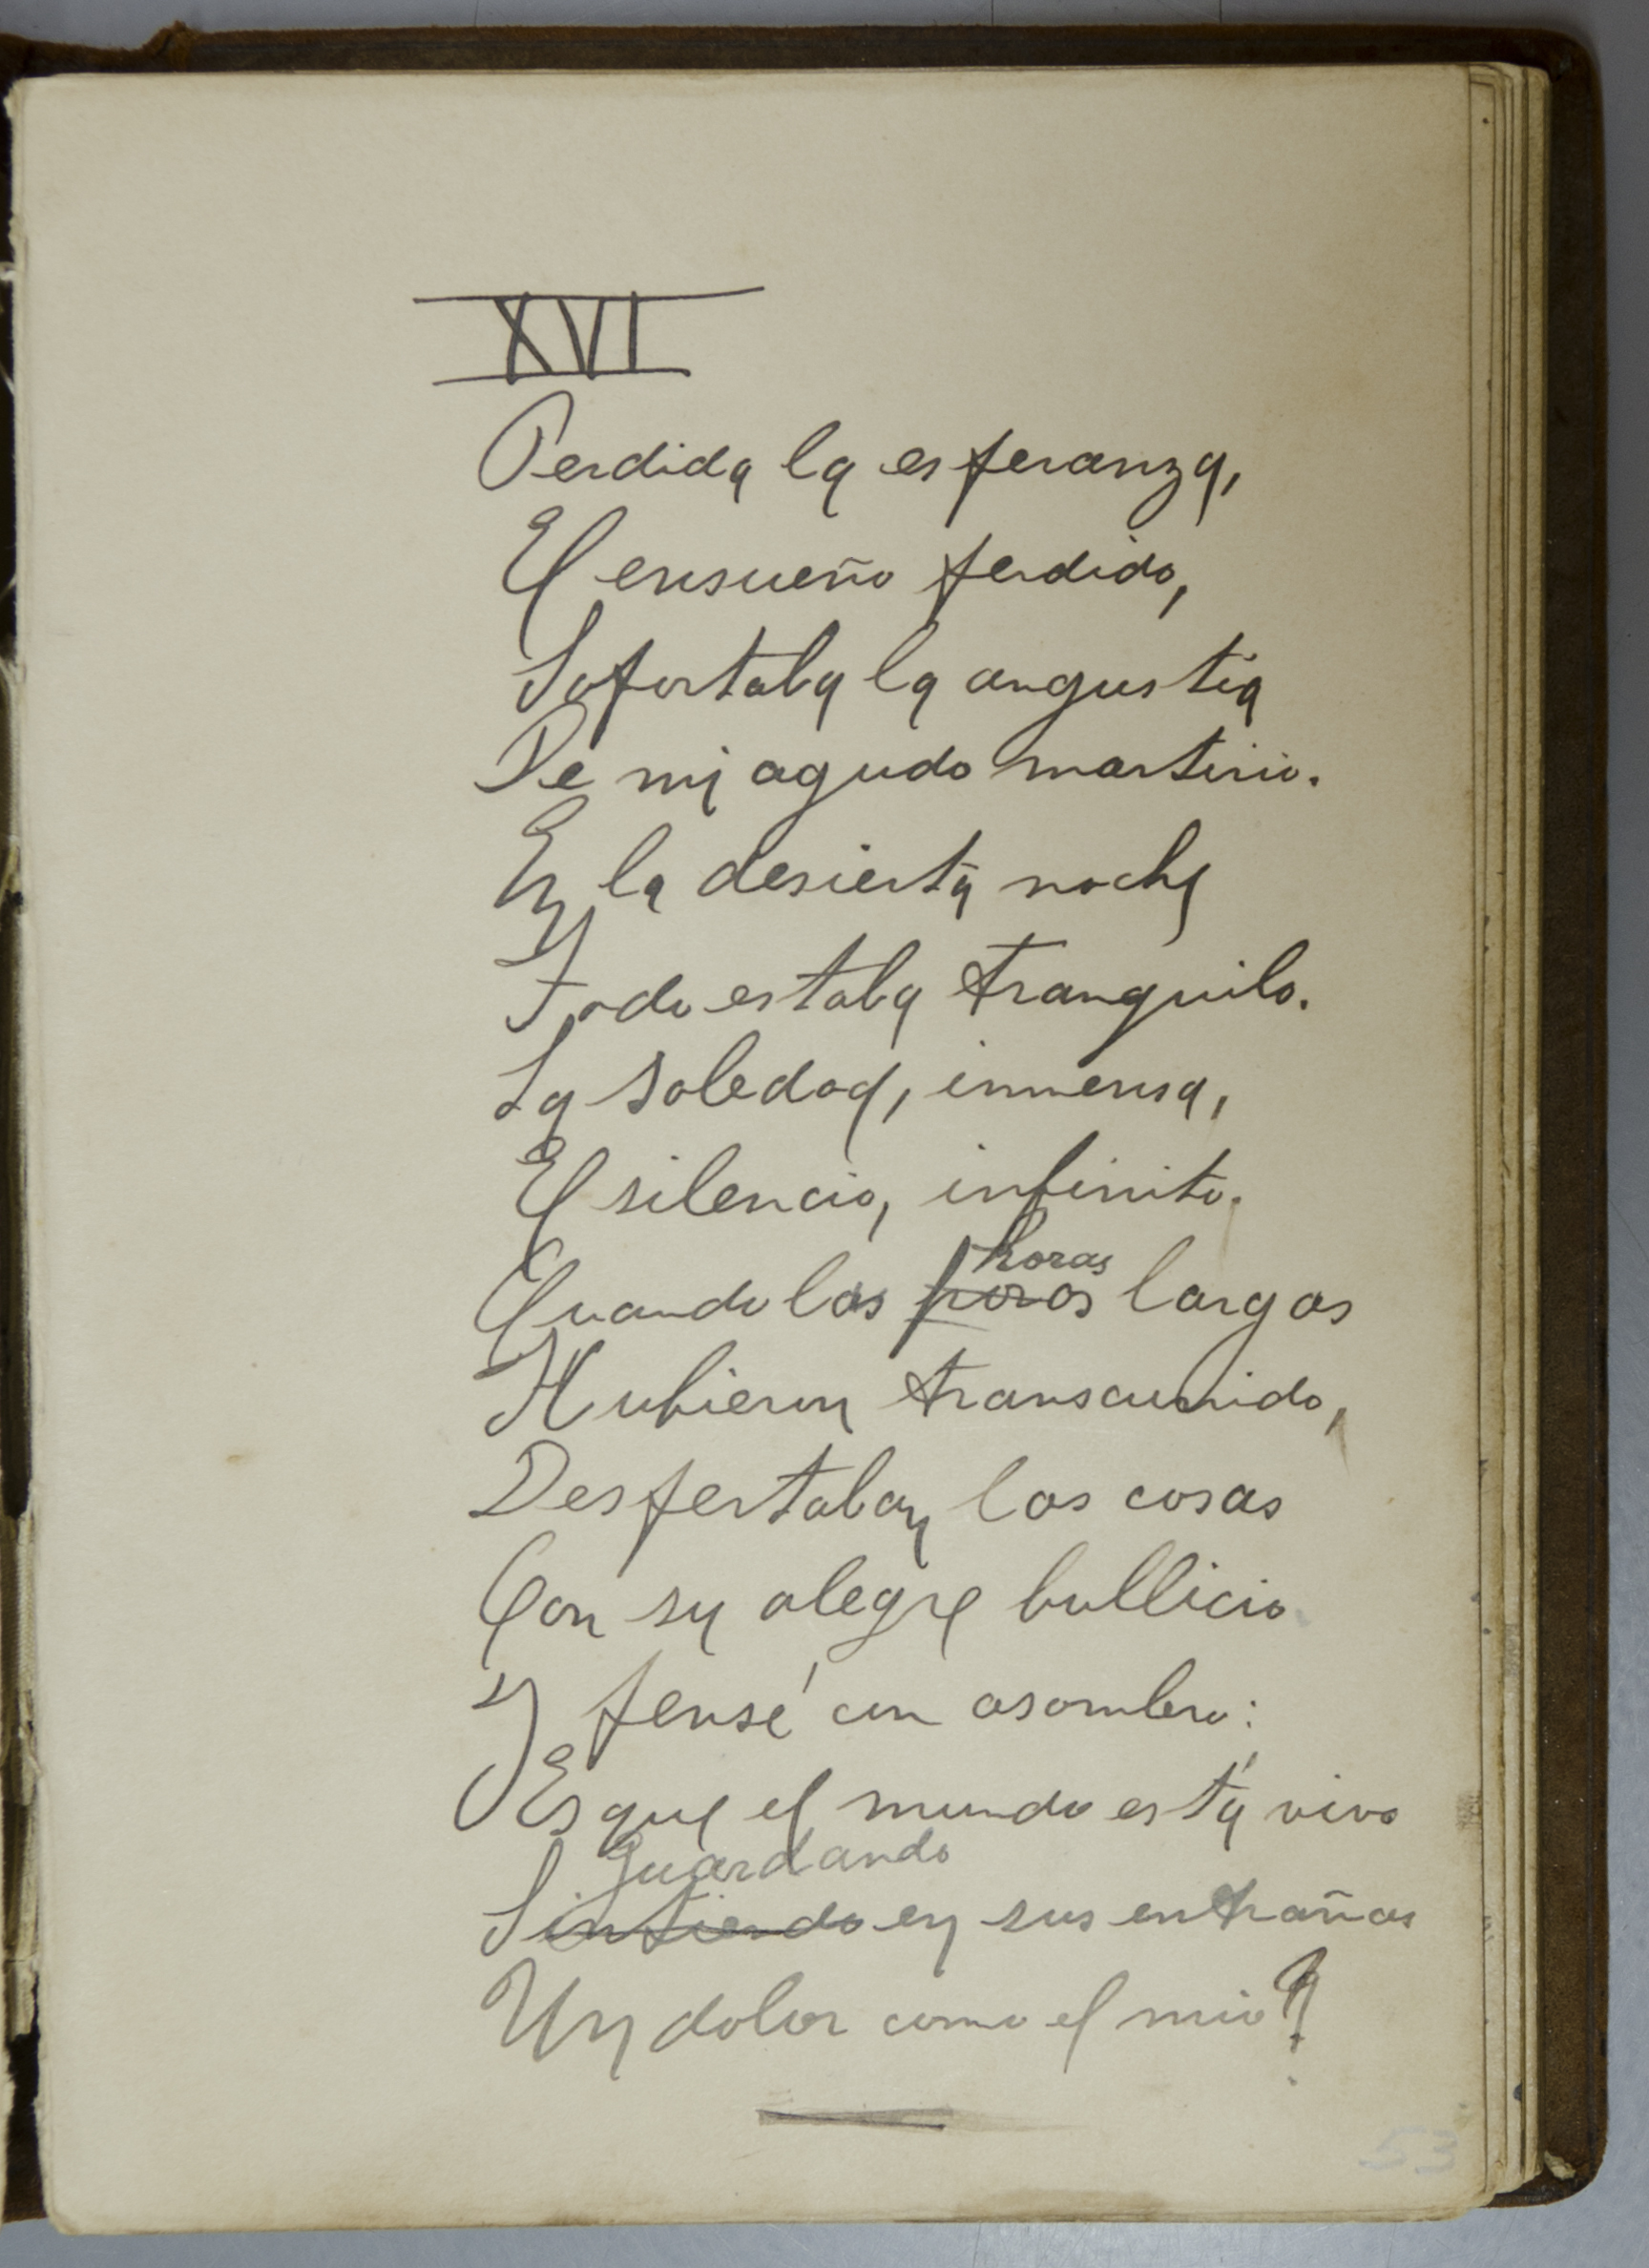 XVI
Perdida la esperanza,
El ensueño perdido,
Soportaba la angustia
De mi agudo martirio.
En la desierta noche
Todo estaba tranquilo.
La soledad, inmensa,
El silencio, infinito.
horas
Cuando las horas largas
Hubieron transcurrido,
Despertaban las cosas
Con su alegre bullicio
Y pensé con asombro:
¿Es que el mundo está vivo
Guardando
Sintiendo en sus entrañas
Un dolor como el mio?
53